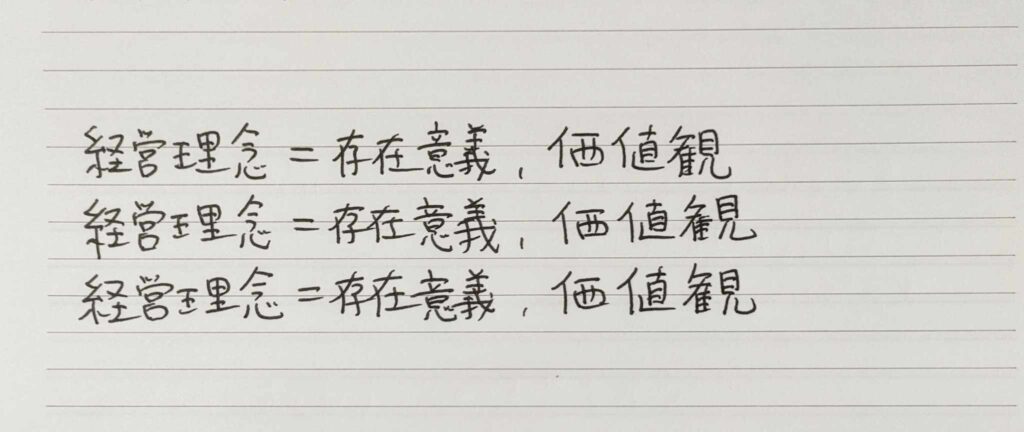 経営理念=存在意義,価値観
経営理念=存在意義,価値観
経営理念=存在意義,価値観